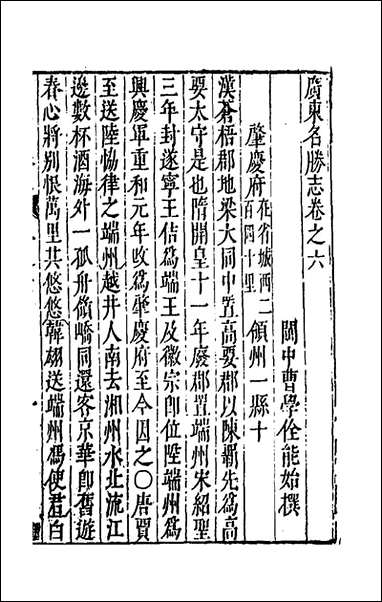 廣東名勝志卷之六
閩中曹學佺能始撰
肇慶府在省城西二百四十里領州一縣十
漢蒼梧郡地梁大同中置高要郡以陳霸先爲高
要太守是也隋開皇十一年廢郡置端州宋紹聖
三年封遂寧王佶爲端王及徽宗卽位陞端州爲
興慶軍重和元年收爲肇慶府至今因之〇唐賈
至送陸恊律之端州越井人南去湘州水北流江
邊數杯酒海外一孤舟嶺嶠同還客京華卽舊遊
春心將別恨萬里共悠悠韓翃送端州馮使君白